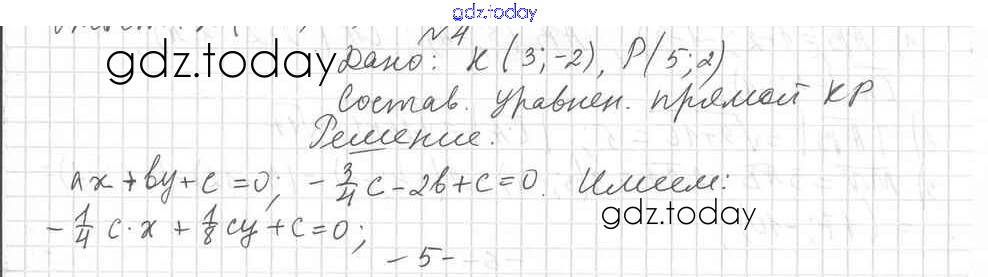 gdz.today
№4
gdz.today Дано: K(3;-2), P(5;2)
Состав. уравнен. прямой KP
Решение.
ax+by+c=0; -3/4c-2b+c=0. Имеем:
gdz.today
-1/4c·x+1/8cy+c=0;
-5-